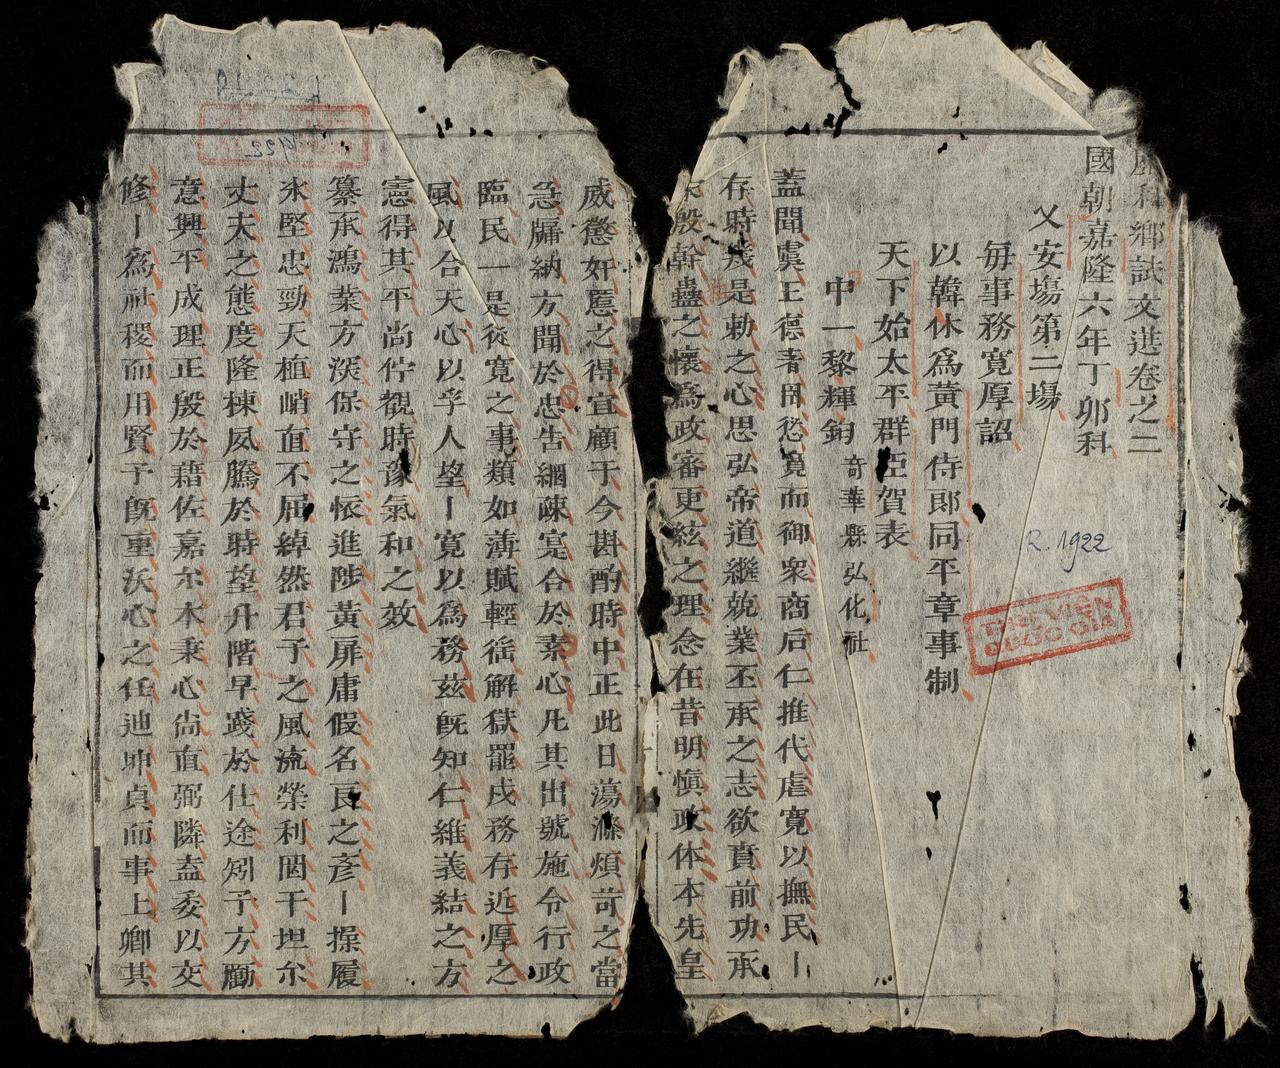 歷科鄉試文選卷之二
國朝嘉隆六年丁卯科
乂安塲第二塲
每事務寬厚詔
以韓休為黃門侍郎同平章事制
天下始太平群臣賀表
中一黎輝鈞 奇華縣弘化社
蓋聞虞王德著罔愆寬而御衆商后仁推代虐寬以撫民丨
存時幾是勅之心思弘帝道繼兢業丕承之志欲賁前功承
殷幹蠱之懷為政審更絃之理念在昔明愼政体本先皇
威懲奸慝之得宜顧于今斟酌時中正此日蕩滌煩苛之當
急牖納方聞於忠告網疎寔合於素心凡其出號施令行政
臨民一是從寬之事類如薄賦輕徭解獄罷戍務存近厚之
風以合天心以孚人望丨寬以為務茲旣知仁維義結之方
憲得其平尚佇觀時豫氣和之效
纂承鴻業方深保守之懷進陟黃扉庸假名良之彥丨操履
氷堅忠勁天植峭直不屈綽然君子之風流榮利罔干坦尒
丈夫之態度隆棟夙騰於時望升階早踐於仕途矧予方勵
意興平成理正殷於藉佐嘉尒木秉心尚直弼隣盍委以交
修丨為社稷而用賢予旣重沃心之任迪坤貞而事上卿其
R. 1922
THƯ VIỆN
QUỐC GIA
1922